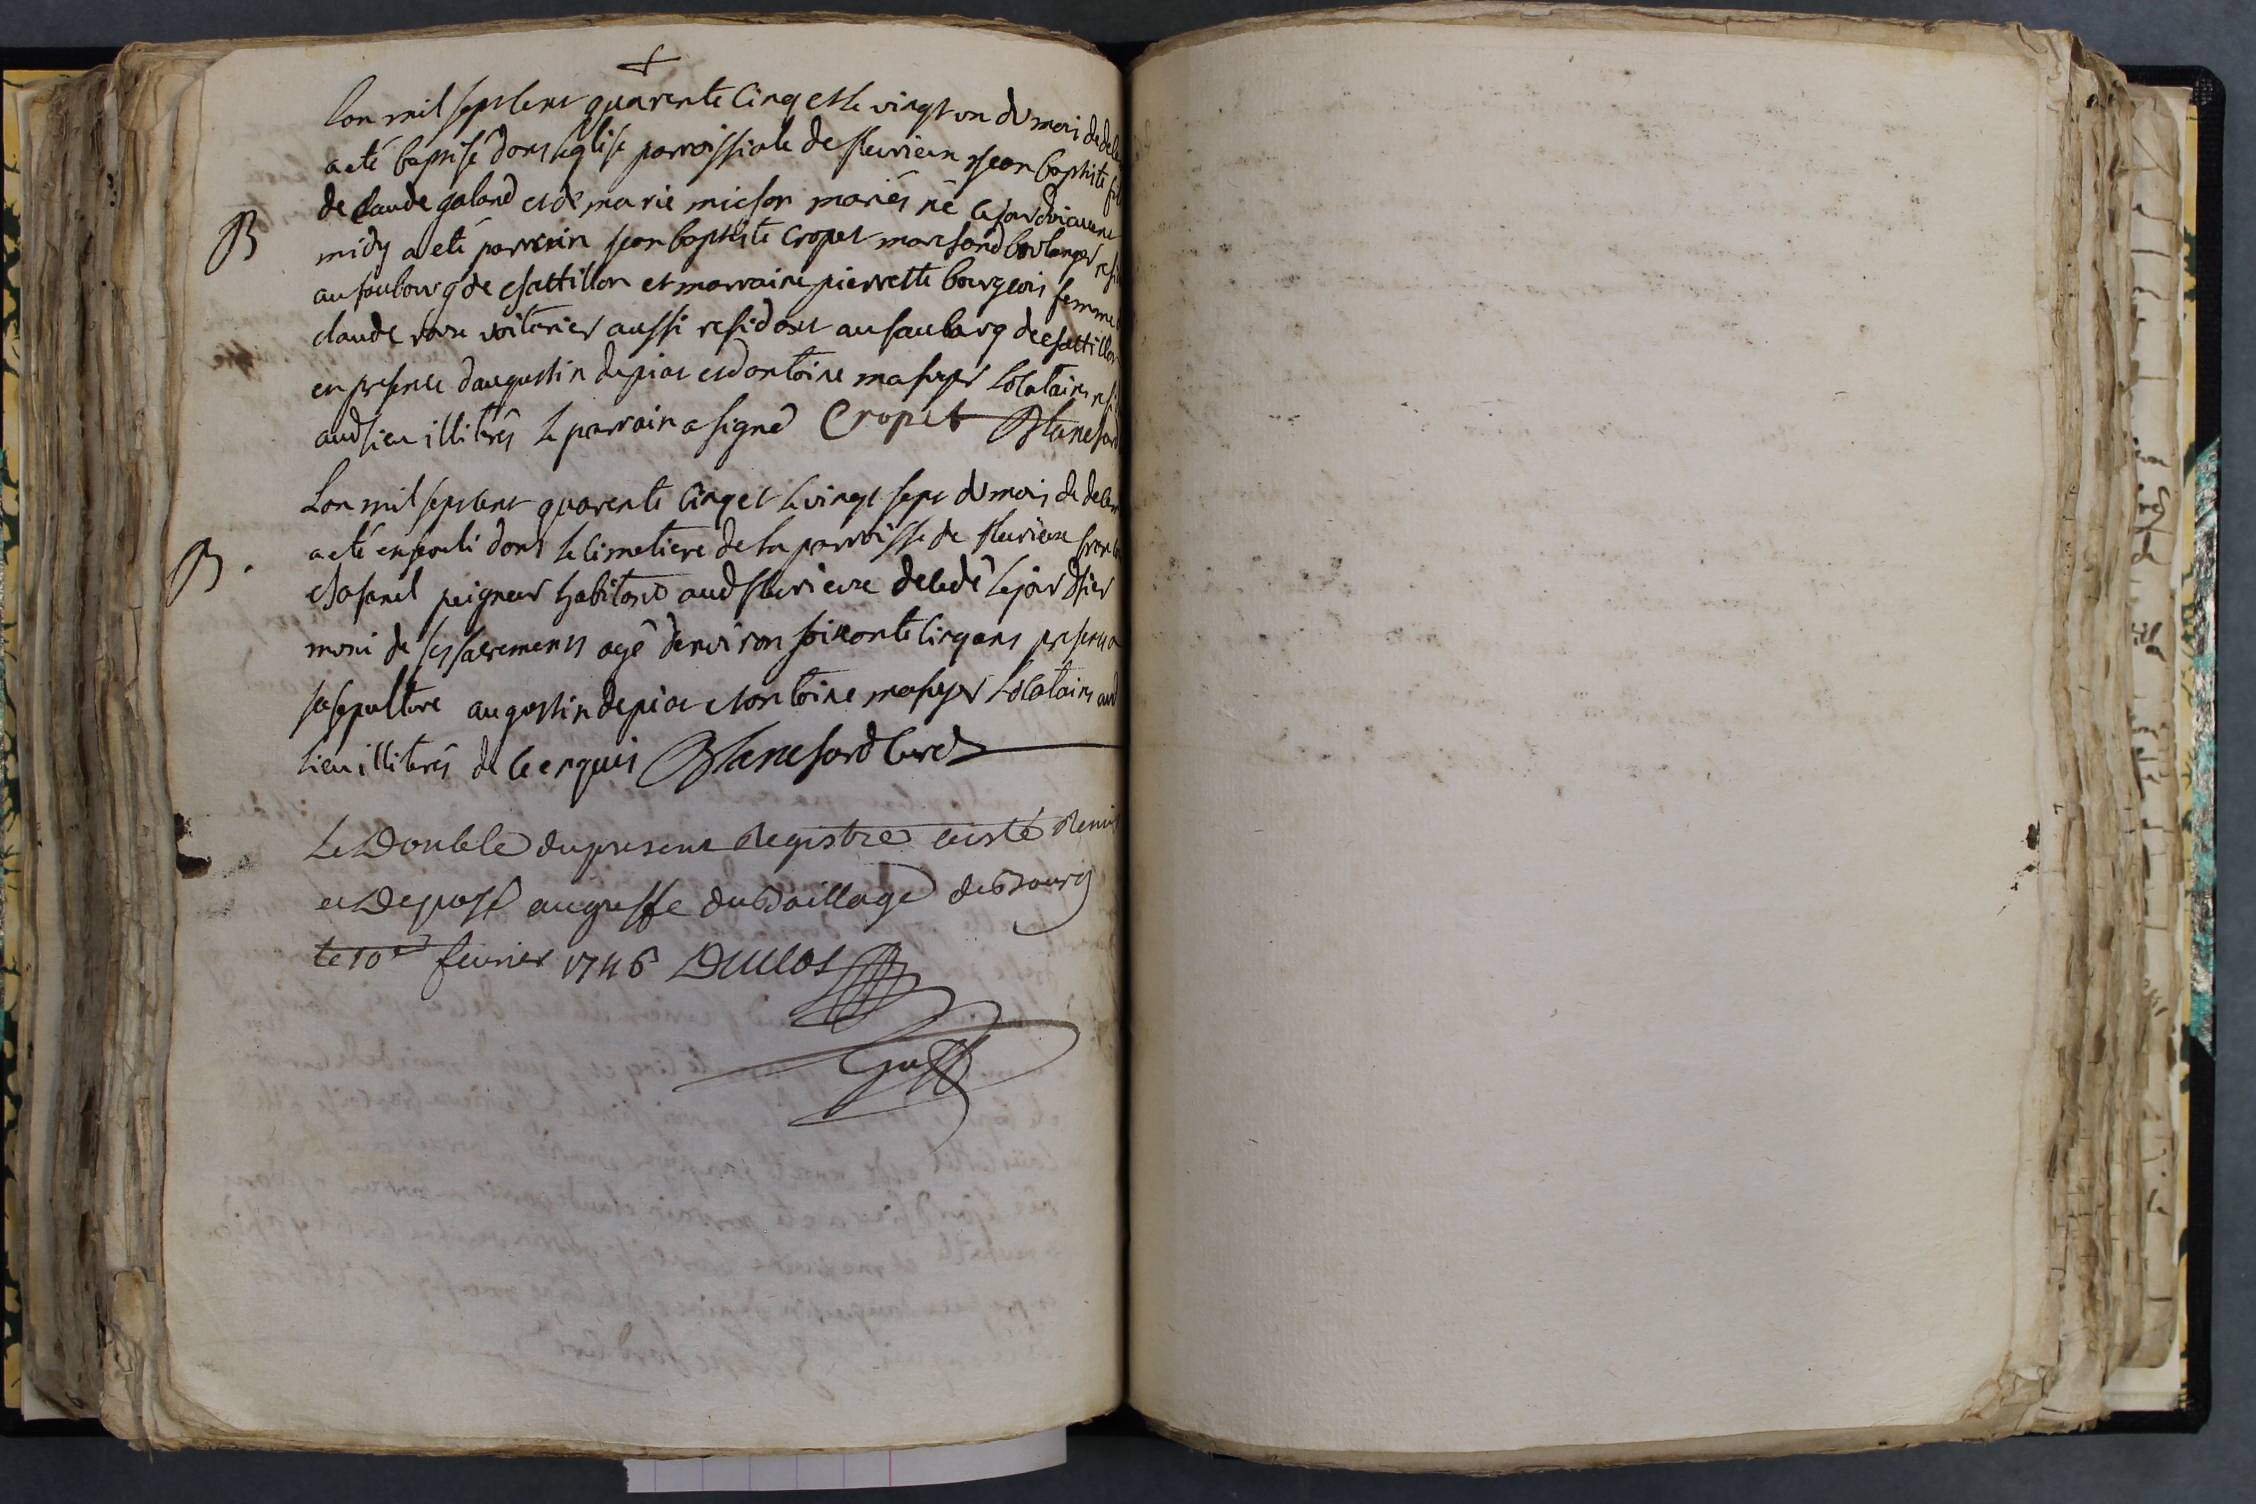 Lan mil sept cent quarente cinq et le vingt un du mois de dece
a eté baptisé dans leglise parroissiale de fleurieux jean baptiste fil
de claude galand et de marie michon mariés né le jour
midy a eté parrain jean baptiste cropet marchand boulanger resi
au faubourg de chattillon et marraine pierrette bourgeois femme
claude voiturier aussi residant au faubourg de chattillon
en presence daugustin depiat et dantoine mahuyer locataires resi
aud lieu illitérés le parrain a signé Cropet Blanchard
B
Lan mil sept cent quarente cinq et le vingt sept du mois de decem
a eté enseveli dans le cimetiere de la parroisse de fleurieux
chafanel peigneur habitant aud fleurieux decedé le jour dhier
muni de ses sacrements agé denviron soixante cinq ans presents a
sa sepulture augustin depiat et antoine mahuyer locataires aud
lieu illitérés de ce enquis Blanchard curé
B.
Le Double du present Registre a esté Remis
et Deposé au greffe du Baillage de Bourg
le 10e fevrier 1746 Duclos
Greff